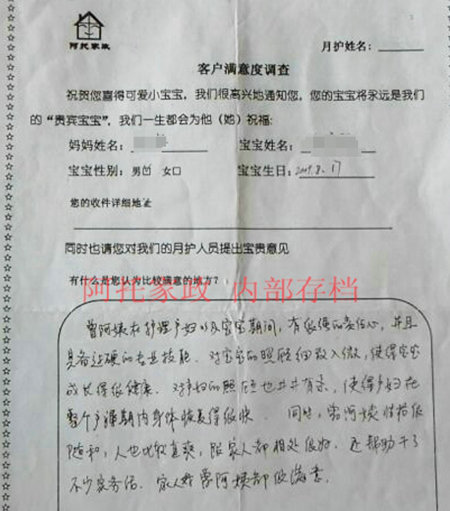 阿托家政
月护姓名：
客户满意度调查
祝贺您喜得可爱小宝宝，我们很高兴地通知您，您的宝宝将永远是我们
的“贵宾宝宝”，我们一生都会为他（她）祝福：
妈妈姓名： 宝宝姓名：
宝宝性别：男 女口 宝宝生日：2009.8.17
您的收件详细地址
同时也请您对我们的月护人员提出宝贵意见
有什么是您认为比较满意的地方？
阿托家政 内部存档
曾阿姨在护理产妇以及宝宝期间，有很强的责任心，并且
具备过硬的专业技能。对宝宝的照顾细致入微，使得宝宝
成长得很健康。对产妇的照顾也井井有条，使得产妇在
整个产褥期内身体恢复得很快。同时，曾阿姨性格很
随和，人也比较直爽，跟家人都相处很好。还帮助干了
不少家务活。家人对曾阿姨都很满意。